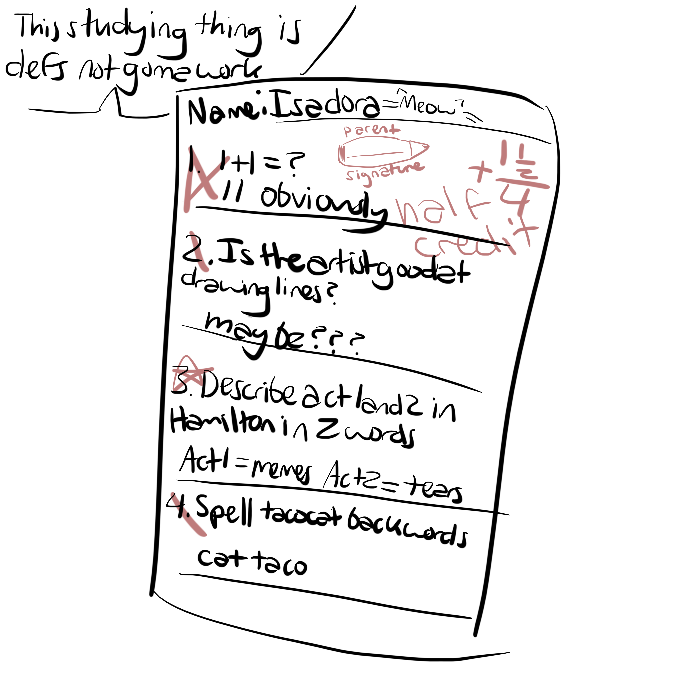 This studying thing is
defs not gonna work
Name: Isadora ="Meow"=
parent
signature
+1 1/2
4
1. 1+1=?
11 obviously
half
credit
2. Is the artist good at
drawing lines?
maybe???
3. Describe act 1 and 2 in
Hamilton in 2 words
Act 1 = memes Act 2 = tears
4. Spell tacocat backwords
cat taco